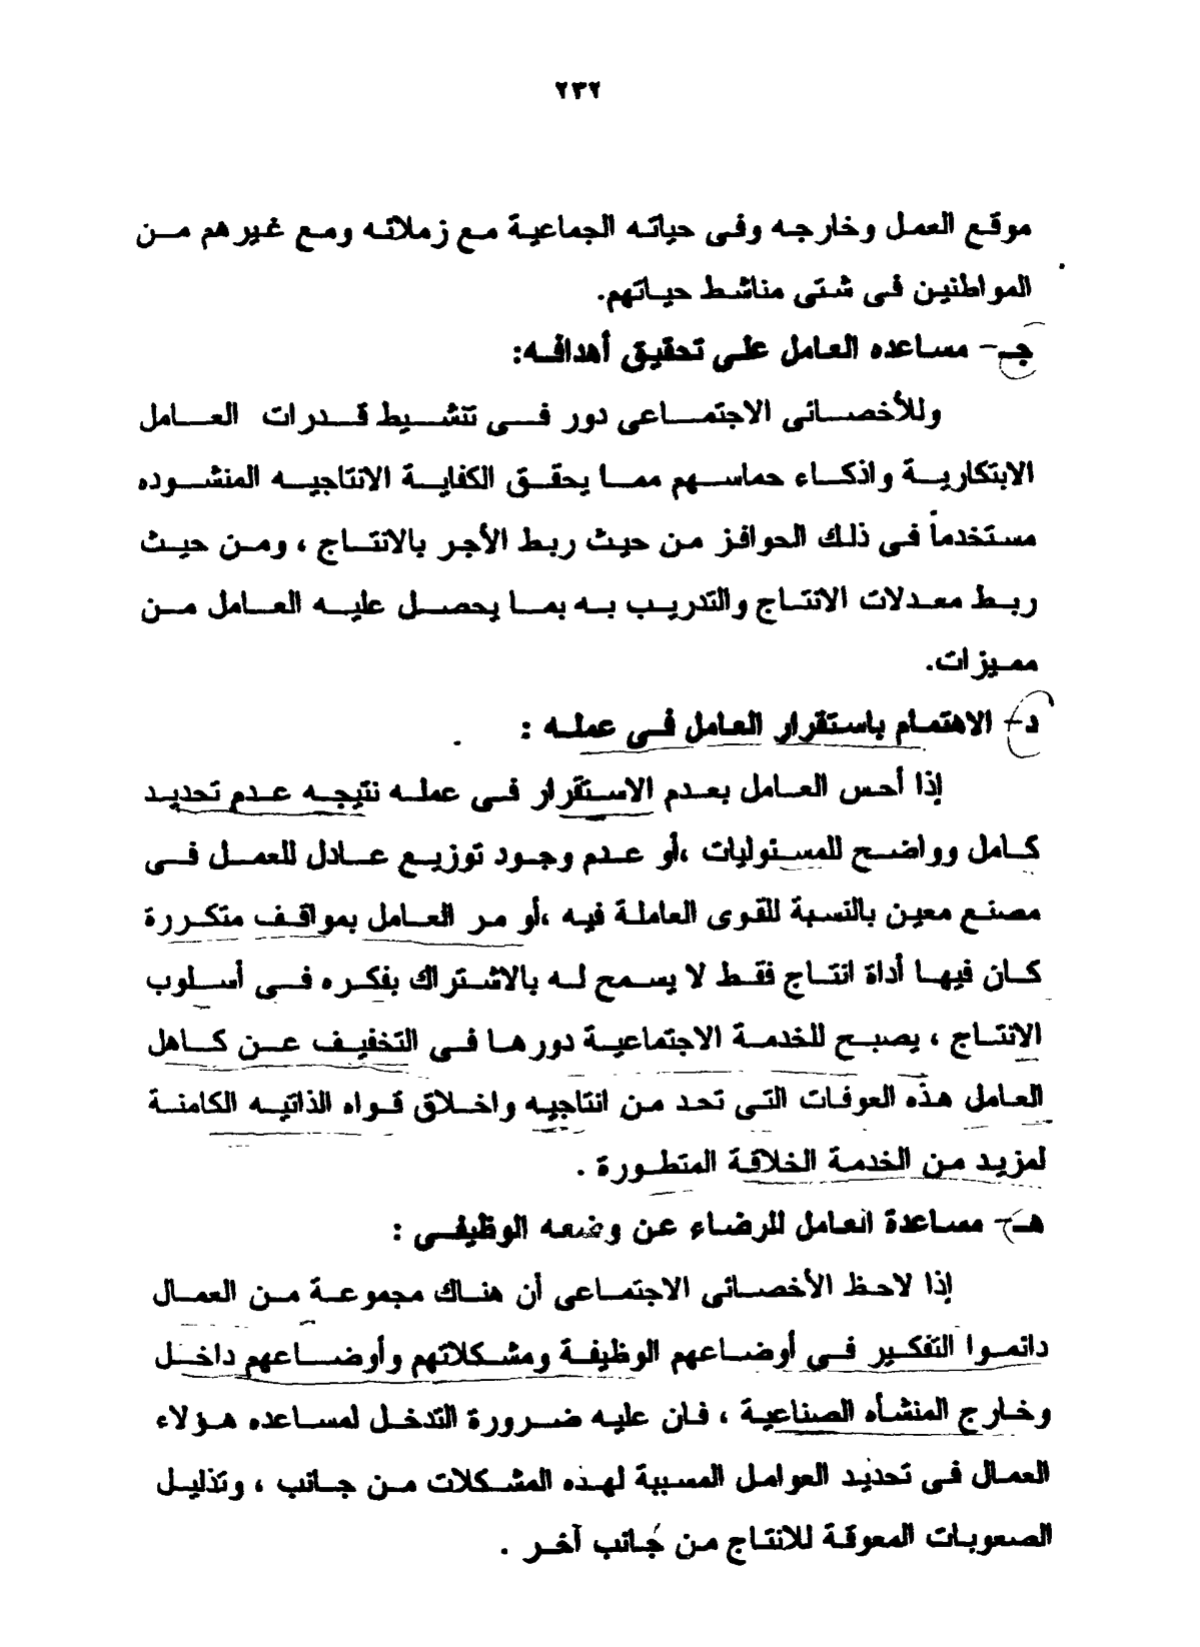 ٢٣٢
موقع العمل وخارجه وفى حياته الجماعية مع زملائه ومع غيرهم من
المواطنين فى شتى مناشط حياتهم.
جـ- مساعده العامل على تحقيق أهدافه:
وللأخصائى الاجتماعى دور فى تنشيط قدرات العامل
الابتكارية واذكاء حماسهم مما يحقق الكفاية الانتاجيه المنشوده
مستخدماً فى ذلك الحوافز من حيث ربط الأجر بالانتاج ، ومن حيث
ربط معدلات الانتاج والتدريب به بما يحصل عليه العامل من
مميزات.
د- الاهتمام باستقرار العامل فى عمله :
إذا أحس العامل بعدم الاستقرار فى عمله نتيجه عدم تحديد
كامل وواضح للمسئوليات ،أو عدم وجود توزيع عادل للعمل فى
مصنع معين بالنسبة للقوى العاملة فيه ،أو مر العامل بمواقف متكررة
كان فيها أداة انتاج فقط لا يسمح له بالاشتراك بفكره فى أسلوب
الانتاج ، يصبح للخدمة الاجتماعية دورها فى التخفيف عن كاهل
العامل هذه العوقات التى تحد من انتاجيه واخلاق قواه الذاتيه الكامنة
لمزيد من الخدمة الخلاقة المتطورة .
هـ- مساعدة العامل للرضاء عن وضعه الوظيفى :
إذا لاحظ الأخصائى الاجتماعى أن هناك مجموعة من العمال
دائموا التفكير فى أوضاعهم الوظيفة ومشكلاتهم وأوضاعهم داخل
وخارج المنشأه الصناعية ، فان عليه ضرورة التدخل لمساعده هؤلاء
العمال فى تحديد العوامل المسببة لهذه المشكلات من جانب ، وتذليل
الصعوبات المعوقة للانتاج من جانب آخر .